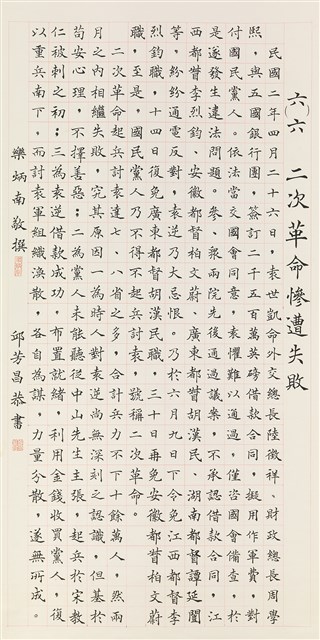 六(六) 二次革命慘遭失敗
民國二年四月二十六日，袁世凱命外交總長陸徵祥、財政總長周學
熙，與五國銀行團，簽訂二千五百萬英磅借款合同，擬用作軍費，對
付國民黨人。依法當交國會同意，袁懼難以通過，僅咨國會備查，於
是遂發生違法問題。參、衆兩院先後通過議案，不承認借款合同，江
西都督李烈鈞、安徽都督柏文蔚、廣東都督胡漢民、湖南都督譚延闓
等，紛紛通電反對，袁逆乃大忌恨。乃於六月九日下令免江西都督李
烈鈞職，十四日復免廣東都督胡漢民職，三十日再免安徽都督柏文蔚
職，至是，國民黨人乃不得不起兵討袁，號稱二次革命。
二次革命起兵討袁達七、八省之多，合計兵力不下十餘萬人，然兩
月之內相繼失敗，究其原因一為時人對袁逆尚無深刻之認識，但基於
苟安心理，不擇善惡；二為黨人未能聽從中山先生主張，起兵於宋教
仁被刺之初；三為袁逆借款成功，布置就緒，利用金錢收買黨人，復
以重兵南下，而討袁軍組織渙散，各自為謀，力量分散，遂無所成。
樂炳南敬撰 邱芳昌恭書